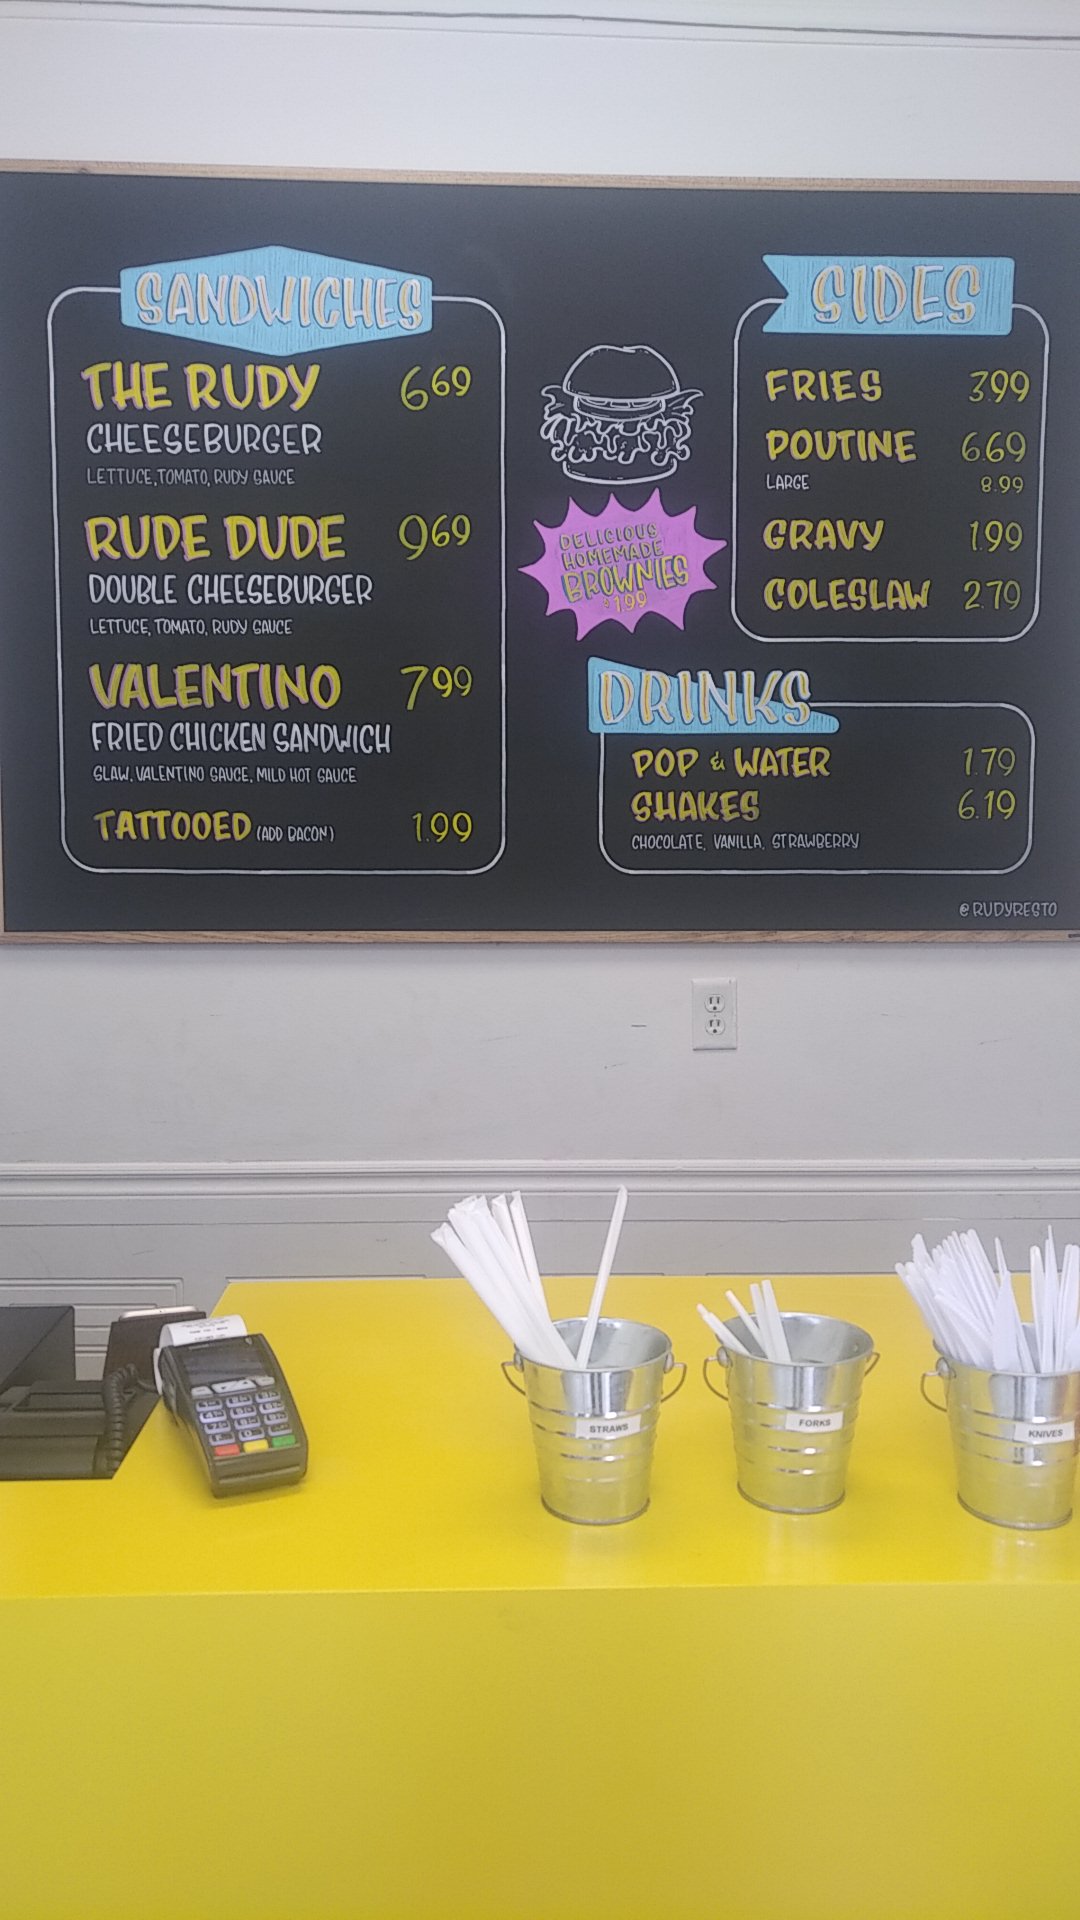 SANDWICHES
THE RUDY 6.69
CHEESEBURGER
LETTUCE, TOMATO, RUDY SAUCE
RUDE DUDE 9.69
DOUBLE CHEESEBURGER
LETTUCE, TOMATO, RUDY SAUCE
VALENTINO 7.99
FRIED CHICKEN SANDWICH
SLAW, VALENTINO SAUCE, MILD HOT SAUCE
TATTOOED (ADD BACON) 1.99
DELICIOUS
HOMEMADE
BROWNIES
$1.99
SIDES
FRIES 3.99
POUTINE 6.69
LARGE 8.99
GRAVY 1.99
COLESLAW 2.79
DRINKS
POP & WATER 1.79
SHAKES 6.19
CHOCOLATE, VANILLA, STRAWBERRY
@RUDYRESTO
STRAWS
FORKS
KNIVES